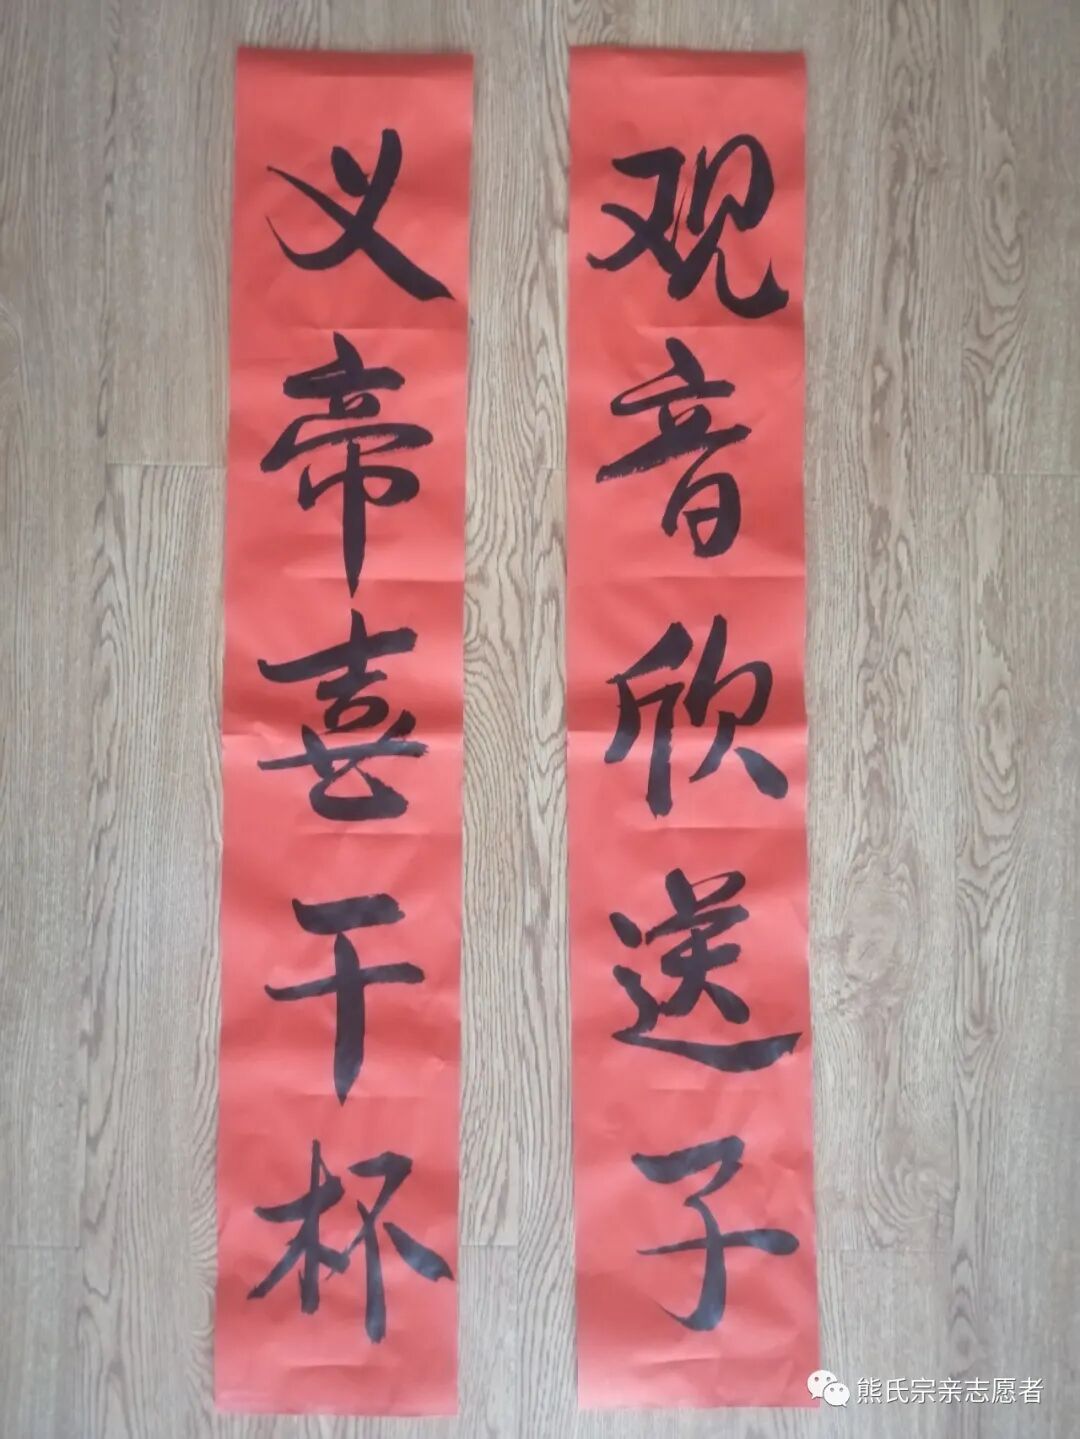 观音欣送子
义帝喜干杯
熊氏宗亲志愿者